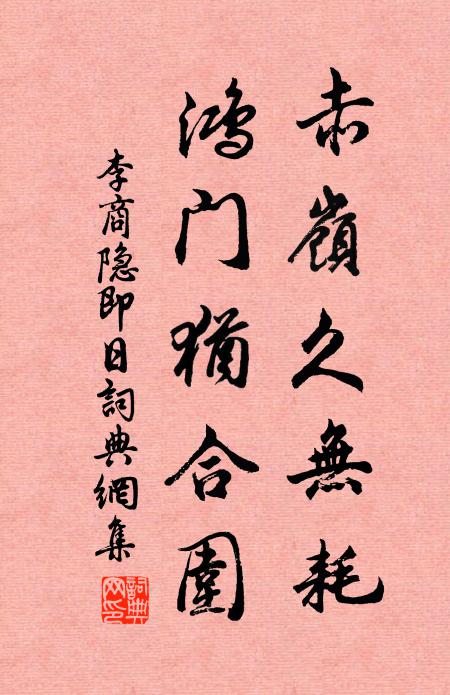 赤嶺久無耗
鴻门猶合圍
李商隐即日詞典網集
詞典网印